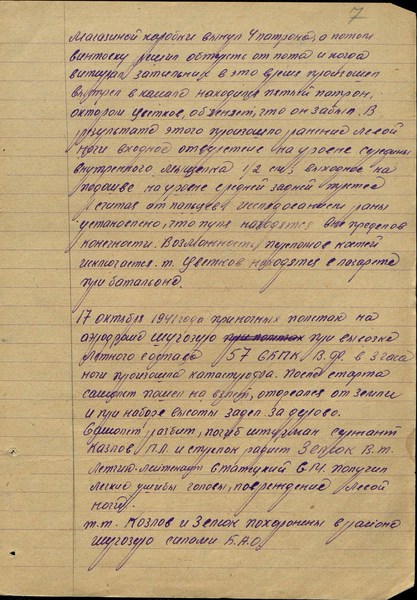 7
магазинной коробки вынул 4 патрона, а потом
винтовку решил обтереть от пота и когда
вытирал затыльник в это время произошел
выстрел в канале находился пятый патрон,
о котором Цветков, объясняет, что он забыл. В
результате этого произошло ранение левой
ноги входное отверстие на уровне середины
внутреннего мыщелка 1/2 см, выходное на
подошве на уровне средней задней трети
считая от пальцев. Исследованием раны
установлено, что пуля находится вне пределов
конечности. Возможность перелома костей
исключается. т. Цветков находится в лазарете
при батальоне.
17 октября 1941 года при ночных полетах на
аэродроме Шугозеро при вывозке
летного состава 57 СБПК В.Ф. в 3 часа
ночи произошла катастрофа. После старта
самолет пошел на взлет, оторвался от земли
и при наборе высоты задел за дерево.
Самолет разбит, погиб штурман сержант
Козлов П.Л и стрелок радист Зепюк В.т.
Летчик-лейтенант получил
легкие ушибы головы, повреждение левой
ноги.
т.т. Козлов и Зепюк похоронены в районе
Шугозеро силами Б.А.О.